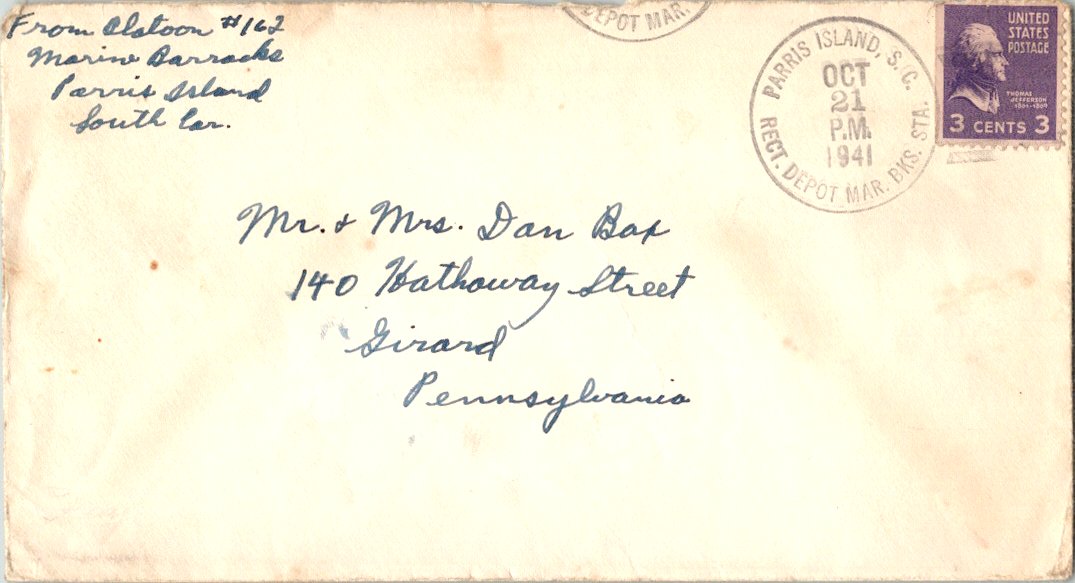 From Platoon #162
Marine Barracks
Parris Island
South Car.
DEPOT MAR.
PARRIS ISLAND, S.C.
OCT
21
P.M.
1941
RECT. DEPOT MAR. BKS. STA.
UNITED
STATES
POSTAGE
THOMAS
JEFFERSON
1801-1809
3 CENTS 3
Mr. & Mrs. Dan Bax
140 Hathaway Street
Girard
Pennsylvania